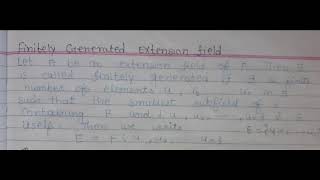 Finitely Generated Extension field
Let A be an extension field of F. Then E
is called finitely generated if ∃ a finite
number of elements u, in E
such that the smallest subfield of
containing F and { u
itself. Then we write
E = F{ u₁, u₂, }